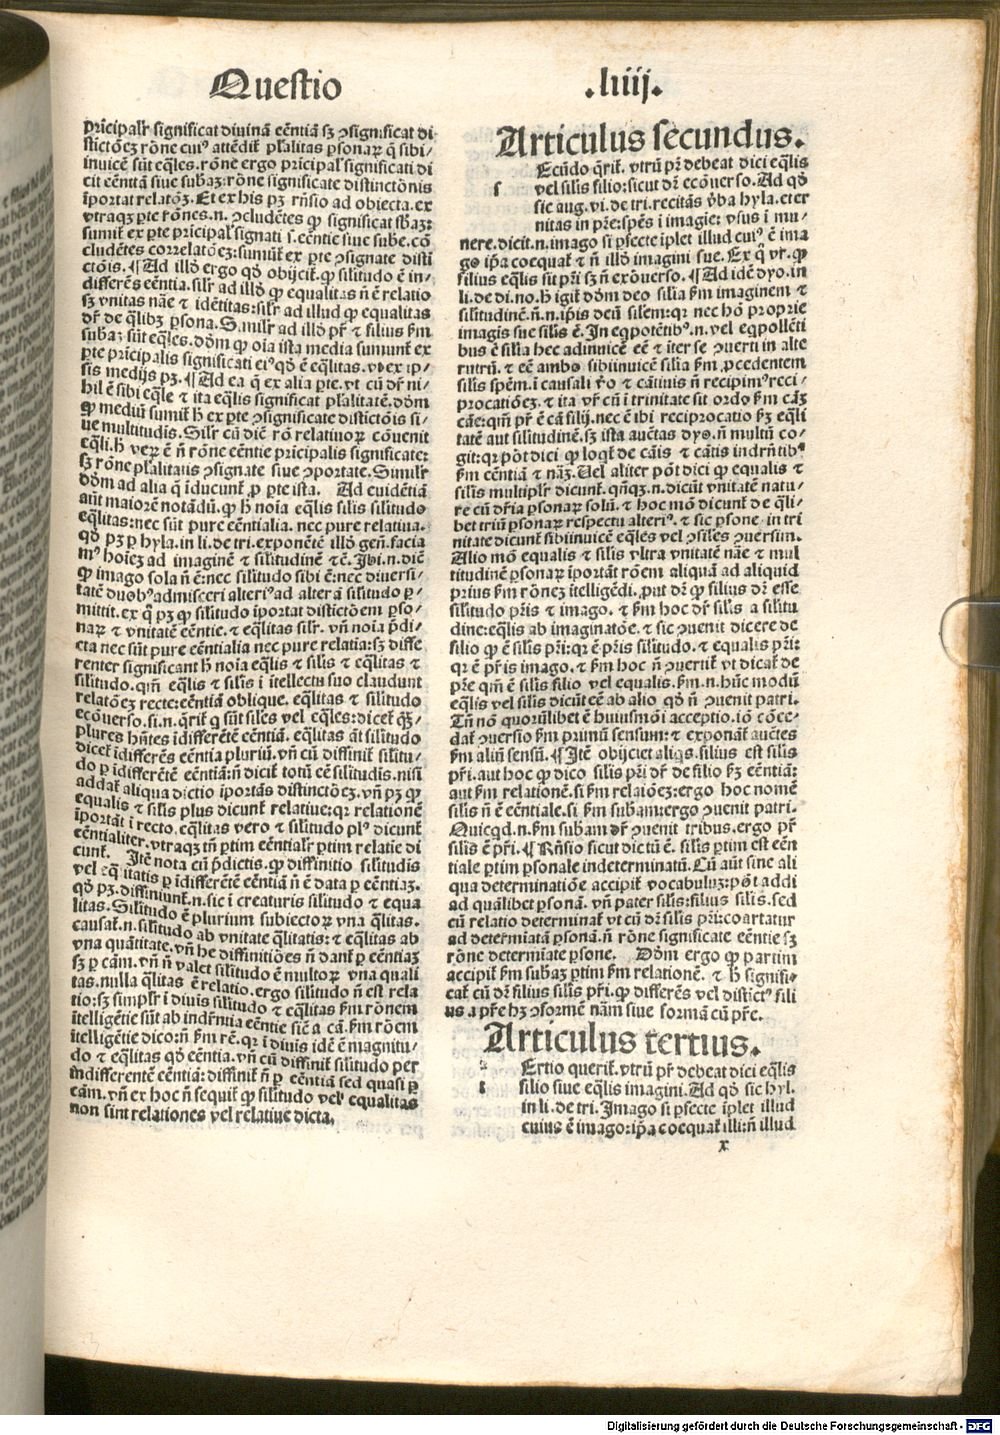 Questio
.liiij.
p̄ricipalr̄ significat diuinā eēntiā sꝫ ꝯsignificat di
stictōeꝫ rōne cuiꝰ attēdit᷑ pl̄alitas ꝑsonaꝝ q̄ sibi/
inuicē sūt eq̄les. rōne ergo pricipal̓ significati di
cit eēntiā siue subaꝫ: rōne significate distinctōnis
īportat relatōꝫ. Et ex his pꝫ rn̄sio ad obiecta. ex
vtraqꝫ pte rōnes. n. ꝯcludētes ꝙ significat sbāꝫ:
clin
cludētes correlatōeꝫ: sumūt᷑ ex ꝑte ꝯsignate disti
ctōis. ¶ Ad illō ergo qđ obijcit᷑. ꝙ silitudo ē in/
differēs eēntia. silr̄ ad illō ꝙ equalitas n̄ ē relatio
sꝫ vnitas nāe ⁊ idētitas: silr̄ ad illud ꝙ equalitas
dr̄ de q̄libꝫ ꝑsona. S. milr̄ ad illō pr̄ ⁊ filius ẜm
subaꝫ sūt eq̄les. dōm ꝙ oīa ista media sumunt᷑ ex
ꝑte pricipalis significati eiꝰ qđ ē eq̄litas. vt ex ip/
sis medijs pꝫ. ¶ Ad ea q̄ ex alia ꝑte. vt cū dr̄ ni/
hil ē sibi eq̄le ⁊ ita eq̄lis significat pl̄alitatē. dōm
ꝙ mediū sumit᷑ h̄ ex ꝑte ꝯsignificate distictōis si/
ue multitudis. Silr̄ cū diē rō relatiuoꝝ cōuenit
eq̄li. h̄ veꝝ ē n̄ rōne eēntie pricipalis significate:
sꝫ rōne pl̄alitatis ꝯsignate siue ꝯportate. Similr̄
dōm ad alia q̄ īducunt᷑ ꝓ ꝑte ista. Ad euidētiā
aūt maiorē notādū. ꝙ h̄ noīa eq̄lis silis silitudo
eq̄litas: nec sūt pure eēntialia. nec pure relatiua.
qđ pꝫ ꝑ hyla. in li. de tri. exponētē illō gen̄. facia
mꝰ hoīeꝫ ad imaginē ⁊ silitudinē ⁊c̄. Ibi. n. diē
ꝙ imago sola n̄ ē: nec silitudo sibi ē: nec diuersi/
tatē duobꝰ admisceri alteriꝰ ad alterā silitudo ꝑ/
mittit. ex q̄ pꝫ ꝙ silitudo īportat distictōem ꝑso/
naꝝ ⁊ vnitatē eēntie. ⁊ eq̄litas silr̄. vn̄ noīa p̄di/
cta nec sūt pure eēntialia nec pure relatīa: sꝫ diffe
renter significant h̄ noīa eq̄lis ⁊ silis ⁊ eq̄litas ⁊
silitudo. qm̄ eq̄lis ⁊ silis i ītellectu suo claudunt
relatōeꝫ recte: eēntiā oblique. eq̄litas ⁊ silitudo
ecōuerso. si. n. q̄rit᷑ q̄ sūt siles vel eq̄les: dicet᷑ qꝫ/
plures hn̄tes īdifferētē eēntiā. eq̄litas āt silitudo
dicet᷑ īdifferēs eēntia pluriū. vn̄ cū diffinit᷑ silitu/
do ꝑ īdifferētē eēntiā: n̄ dicit᷑ totū eē silitudis. nisi
addat᷑ aliqua dictio īportās distinctōeꝫ. vn̄ pꝫ ꝙ
equalis ⁊ silis plus dicunt᷑ relatiue: qꝛ relationē
īportāt i recto. eq̄litas vero ⁊ silitudo plꝰ dicunt᷑
eēntialiter. vtraqꝫ tn̄ ꝑtim eēntialr̄ ꝑtim relatīe di
cunt᷑. Itē nota cū p̄dictis. ꝙ diffinitio silitudis
vel eq̄litatis ꝑ īdifferētē eēntiā n̄ ē data ꝑ eēntiaꝫ.
qđ pꝫ. diffiniunt᷑. n. sic i creaturis silitudo ⁊ equa
litas. Silitudo ē plurium subiectoꝝ vna q̄litas.
causat᷑. n. silitudo ab vnitate q̄litatis: ⁊ eq̄litas ab
vna quātitate. vn̄ he diffinitiōes n̄ dant᷑ ꝑ eēntiaꝫ
sꝫ ꝑ cām. vn̄ n̄ valet silitudo ē multoꝝ vna quali
tas. nulla q̄litas ē relatio. ergo silitudo n̄ est rela
tio: sꝫ simplr̄ i diuis silitudo ⁊ eq̄litas ẜm rōnem
ītelligētie sūt ab indr̄ntia eēntie sic̄ a cā. ẜm rōem
ītelligētie dico: n̄ ẜm rē. qꝛ i diuis idē ē magnitu/
do ⁊ eq̄litas qđ eēntia. vn̄ cū diffinit᷑ silitudo per
indifferentē eēntiā: diffinit᷑ n̄ ꝑ eēntiā sed quasi ꝑ
cām. vn̄ ex hoc n̄ sequit᷑ ꝙ silitudo vel equalitas
non sint relationes vel relatiue dicta.
Articulus secundus.
s
Ecūdo q̄rit᷑. vtrū pr̄ debeat dici eq̄lis
vel silis filio: sicut dr̄ ecōuerso. Ad qđ
sic aug. vi. de tri. recitās v̓ba hyla. eter
nitas in pr̄e: spēs i imagīe: vsus i mu/
nere. dicit. n. imago si ꝑfecte īplet illud cuiꝰ ē ima
go ip̄a coequat᷑ ⁊ n̄ illō imagini sue. Ex q̄ vr̄. ꝙ
filius eq̄lis sit pr̄i sꝫ n̄ ecōuerso. ¶ Ad idē dyo. in
li. de di. no. h̄ igit᷑ dōm deo silia ẜm imaginem ⁊
silitudinē. n̄. n. ip̄is deū silem: qꝛ nec hō proprie
imagis sue silis ē. In eqpotētibꝰ. n. vel eqpollēti
bus ē silīa hec adinuicē eē ⁊ īter se ꝯuerti in alte
rutrū. ⁊ eē ambo sibiinuicē silia ẜm ꝓcedentem
silis spēm. i causali v̓o ⁊ cātiuis n̄ recipimꝰ reci/
procatiōeꝫ. ⁊ ita vr̄ cū i trinitate sit ordo ẜm cāꝫ
cāe: qm̄ pr̄ ē cā filij. nec ē ibi reciprocatio ẜꝫ eq̄li
tatē aut silitudinē. sꝫ ista auctas dyo. n̄ multū co/
git: qꝛ pōt dici ꝙ loqt᷑ de cāis ⁊ cātis indr̄ntibꝰ
ẜm eēntiā ⁊ nāꝫ. Uel aliter pōt dici ꝙ equalis ⁊
silis multiplr̄ dicunt᷑. qn̄qꝫ. n. dicūt vnitatē natu/
re cū dr̄ia ꝑsonaꝝ solū. ⁊ hoc mō dicunt᷑ de q̄li/
bet triū ꝑsonaꝝ respectu alteriꝰ. ⁊ sic ꝑsone in tri
nitate dicunt᷑ sibiinuicē eq̄les vel ꝯsiles ꝯuersim.
Alio mō equalis ⁊ silis vltra vnitatē nāe ⁊ mul
titudinē ꝑsonaꝝ īportāt rōem aliquā ad aliquid
prius ẜm rōneꝫ ītelligēdi. put dr̄ ꝙ filius dr̄ esse
silitudo pr̄is ⁊ imago. ⁊ ẜm hoc dr̄ silis a silitu
dine: eq̄lis ab imaginatōe. ⁊ sic ꝯuenit dicere de
filio ꝙ ē silis pr̄i: qꝛ ē pr̄is silitudo. ⁊ equalis pr̄i:
qꝛ ē pr̄is imago. ⁊ ẜm hoc n̄ ꝯuertit᷑ vt dicat᷑ de
pr̄e qm̄ ē silis filio vel equalis. ẜm. n. hūc modū
eq̄lis vel silis dicūt eē ab alio qđ n̄ ꝯuenit patri.
Tn̄ nō quorūlibet ē huiusmōi acceptio. iō cōce/
dat᷑ ꝯuersio ẜm primū sensum: ⁊ exponāt᷑ auctes
ẜm aliū sensū. ¶ Itē obijciet aliqs. filius est silis
pr̄i. aut hoc ꝙ dico silis pr̄i dr̄ de filio ẜꝫ eēntiā:
aut ẜm relationē. si ẜm relaiōeꝫ: ergo hoc nomē
silis n̄ ē eēntiale. si ẜm subam: ergo ꝯuenit patri.
Quicqd. n. ẜm subam dr̄ ꝯuenit tribus. ergo pr̄
silis ē pr̄i. ¶ Rn̄sio sicut dictū ē. silis ꝑtim est eēn
tiale ꝑtim ꝑsonale indeterminatū. Cū aūt sine ali
qua determinatiōe accipit᷑ vocabuluꝫ: pōt addi
ad qualibet ꝑsonā. vn̄ pater silis: filius silis. sed
cū relatio determinat᷑ vt cū dr̄ silis pr̄i: coartatur
ad determiatā ꝑsonā. n̄ rōne significate eēntie sꝫ
rōne determiate ꝑsone. Dōm ergo ꝙ partim
accipit᷑ ẜm subaꝫ ꝑtim ẜm relationē. ⁊ h̄ signifi/
cat᷑ cū dr̄ filius silis pr̄i. ꝙ differēs vel distictꝰ fili
us a pr̄e hꝫ ꝯformē nām siue formā cū pr̄e.
Articulus tertius.
t
Ertio querit᷑. vtrū pr̄ debeat dici eq̄lis
filio siue eq̄lis imagini. Ad qđ sic hyl.
in li. de tri. Imago si ꝑfecte īplet illud
cuius ē imago: ip̄a coequat᷑ illi: n̄ illud
x
Digitalisierung gefördert durch die Deutsche Forschungsgemeinschaft - DFG